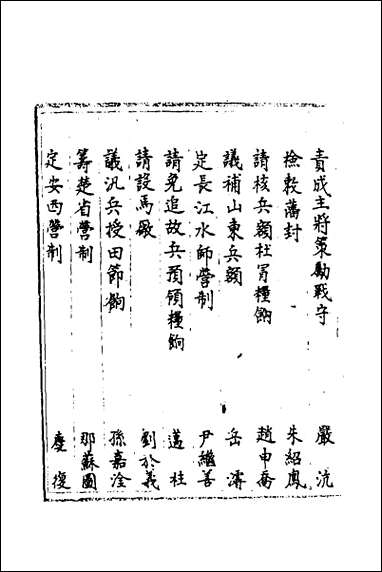 責成主將策勵戰守 嚴沆
檢覈藩封 朱紹鳳
請核兵額杜冐糧餉 趙申喬
議補山東兵額 岳濬
定長江水師營制 尹繼善
請免追故兵預領糧餉 邁柱
請設馬厰 劉於義
議汛兵授田節餉 孫嘉淦
籌楚省營制 那蘇圖
定安西營制 慶復